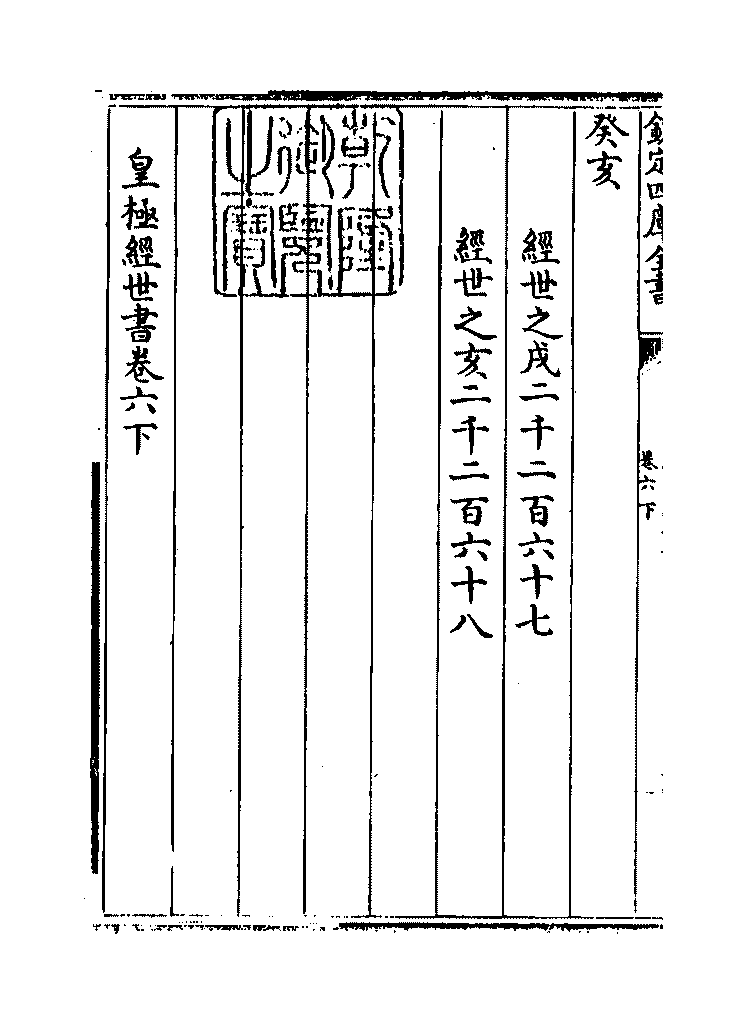 欽定四庫全書
卷六下
癸亥
經世之戌二千二百六十七
經世之亥二千二百六十八
乾隆御覽之寶
皇極經世書卷六下